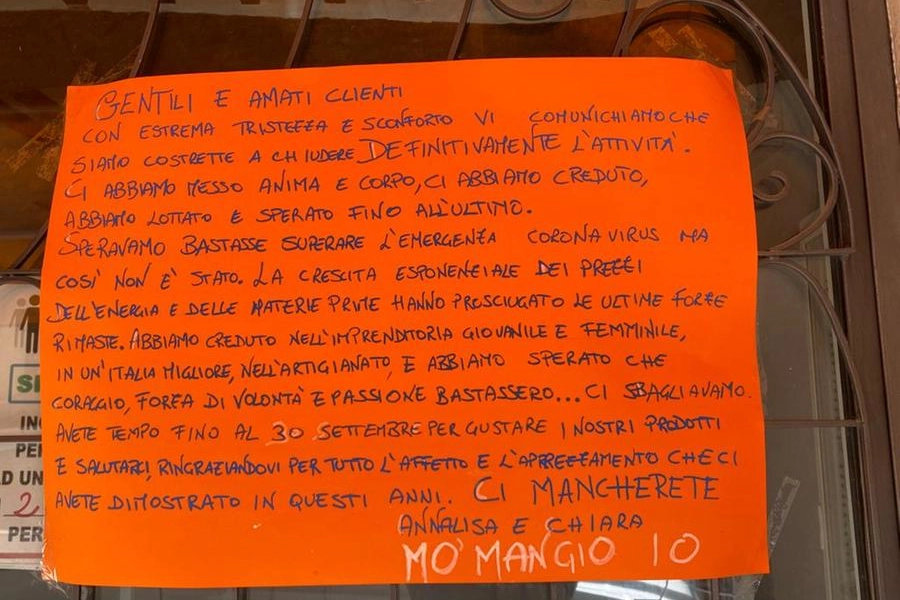 GENTILI E AMATI CLIENTI
CON ESTREMA TRISTEZZA E SCONFORTO VI COMUNICHIAMO CHE
SIAMO COSTRETTE A CHIUDERE DEFINITIVAMENTE L'ATTIVITÀ.
CI ABBIAMO MESSO ANIMA E CORPO, CI ABBIAMO CREDUTO,
ABBIAMO LOTTATO E SPERATO FINO ALL'ULTIMO.
SPERAVAMO BASTASSE SUPERARE L'EMERGENZA CORONAVIRUS MA
COSÌ NON È STATO. LA CRESCITA ESPONENZIALE DEI PREZZI
DELL'ENERGIA E DELLE MATERIE PRIME HANNO PROSCIUGATO LE ULTIME FORZE
RIMASTE. ABBIAMO CREDUTO NELL'IMPRENDITORIA GIOVANILE E FEMMINILE,
IN UN'ITALIA MIGLIORE, NELL'ARTIGIANATO, E ABBIAMO SPERATO CHE
CORAGGIO, FORZA DI VOLONTÀ E PASSIONE BASTASSERO... CI SBAGLIAVAMO.
AVETE TEMPO FINO AL 30 SETTEMBRE PER GUSTARE I NOSTRI PRODOTTI
E SALUTARCI, RINGRAZIANDOVI PER TUTTO L'AFFETTO E L'APPREZZAMENTO CHE CI
AVETE DIMOSTRATO IN QUESTI ANNI. CI MANCHERETE
ANNALISA E CHIARA
MO' MANGIO IO
2
PER